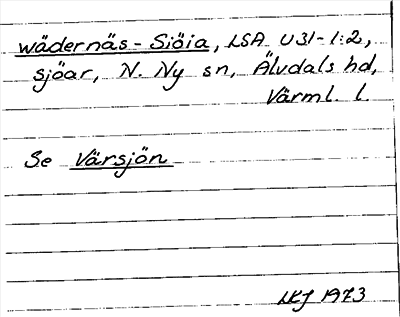 wädernäs-Siöia, LSA U31-1:2,
sjöar, N. Ny sn, Älvdals hd,
Värml. l.
Se Värsjön
LKJ 1973